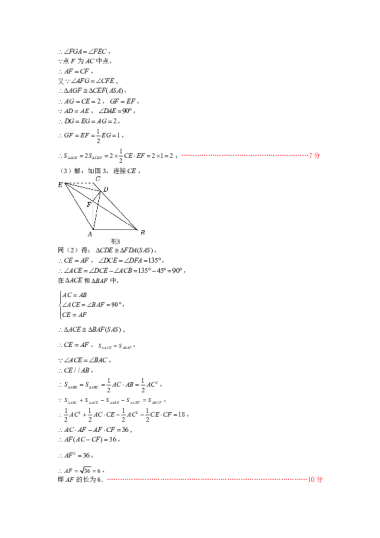 ∴∠FGA=∠FEC，
∵点 F 为 AC 中点，
∴AF=CF，
又∵∠AFG=∠CFE，
∴△AGF≅△CEF(ASA)，
∴AG=CE=2，GF=EF，
∵AD=AE，∠DAE=90°，
∴DG=EG=AG=2，
∴GF=EF=1/2EG=1，
∴S△ACE=2S△CEF=2×1/2CE·EF=2×1=2；……7 分
（3）解：如图 3，连接CE，
E C D F A B
图3
同（2）得：△CDE≅△FDA(SAS)，
∴CE=AF，∠DCE=∠DFA=135°，
∴∠ACE=∠DCE−∠ACB=135°−45°=90°，
在△ACE和△BAF中，
AC=AB
∠ACE=∠BAF=90°，
CE=AF
∴△ACE≅△BAF(SAS)，
∴CE=AF，S△ACE=S△BAF，
∵∠ACE=∠BAC，
∴CE//AB，
∴S△ABE=S△ABC=1/2AC·AB=1/2AC²，
∴1/2AC²+1/2AC·CE−1/2AC²−1/2CE·CF=18，
∴AC·AF−AF·CF=36，
∴AF(AC−CF)=36，
∴AF²=36，
∴AF=√36=6，
即AF的长为 6．……10 分